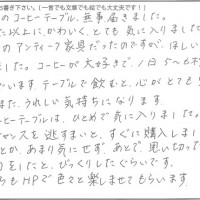 書き下さい。(一言でも文章でも絵でも大丈夫です!)
のコーヒーテーブル、無事届きました。
た以上に、かわいく、とても気に入りました
のアンティーク家具だったのですが、ほしい
ました。コーヒーが大好きで、1日5〜6杯
います。テーブルで飲むと、心がとても
また、うれしい気持ちになります。
コーヒーテーブルは、ひとめで気に入りました。
チャンスを逃すまいと、すぐに購入しま
とか、あまり気にせず、あとで、思い切った
をしたと、びっくりしたぐらいです。
らもHPで色々と楽しませてもらいます。